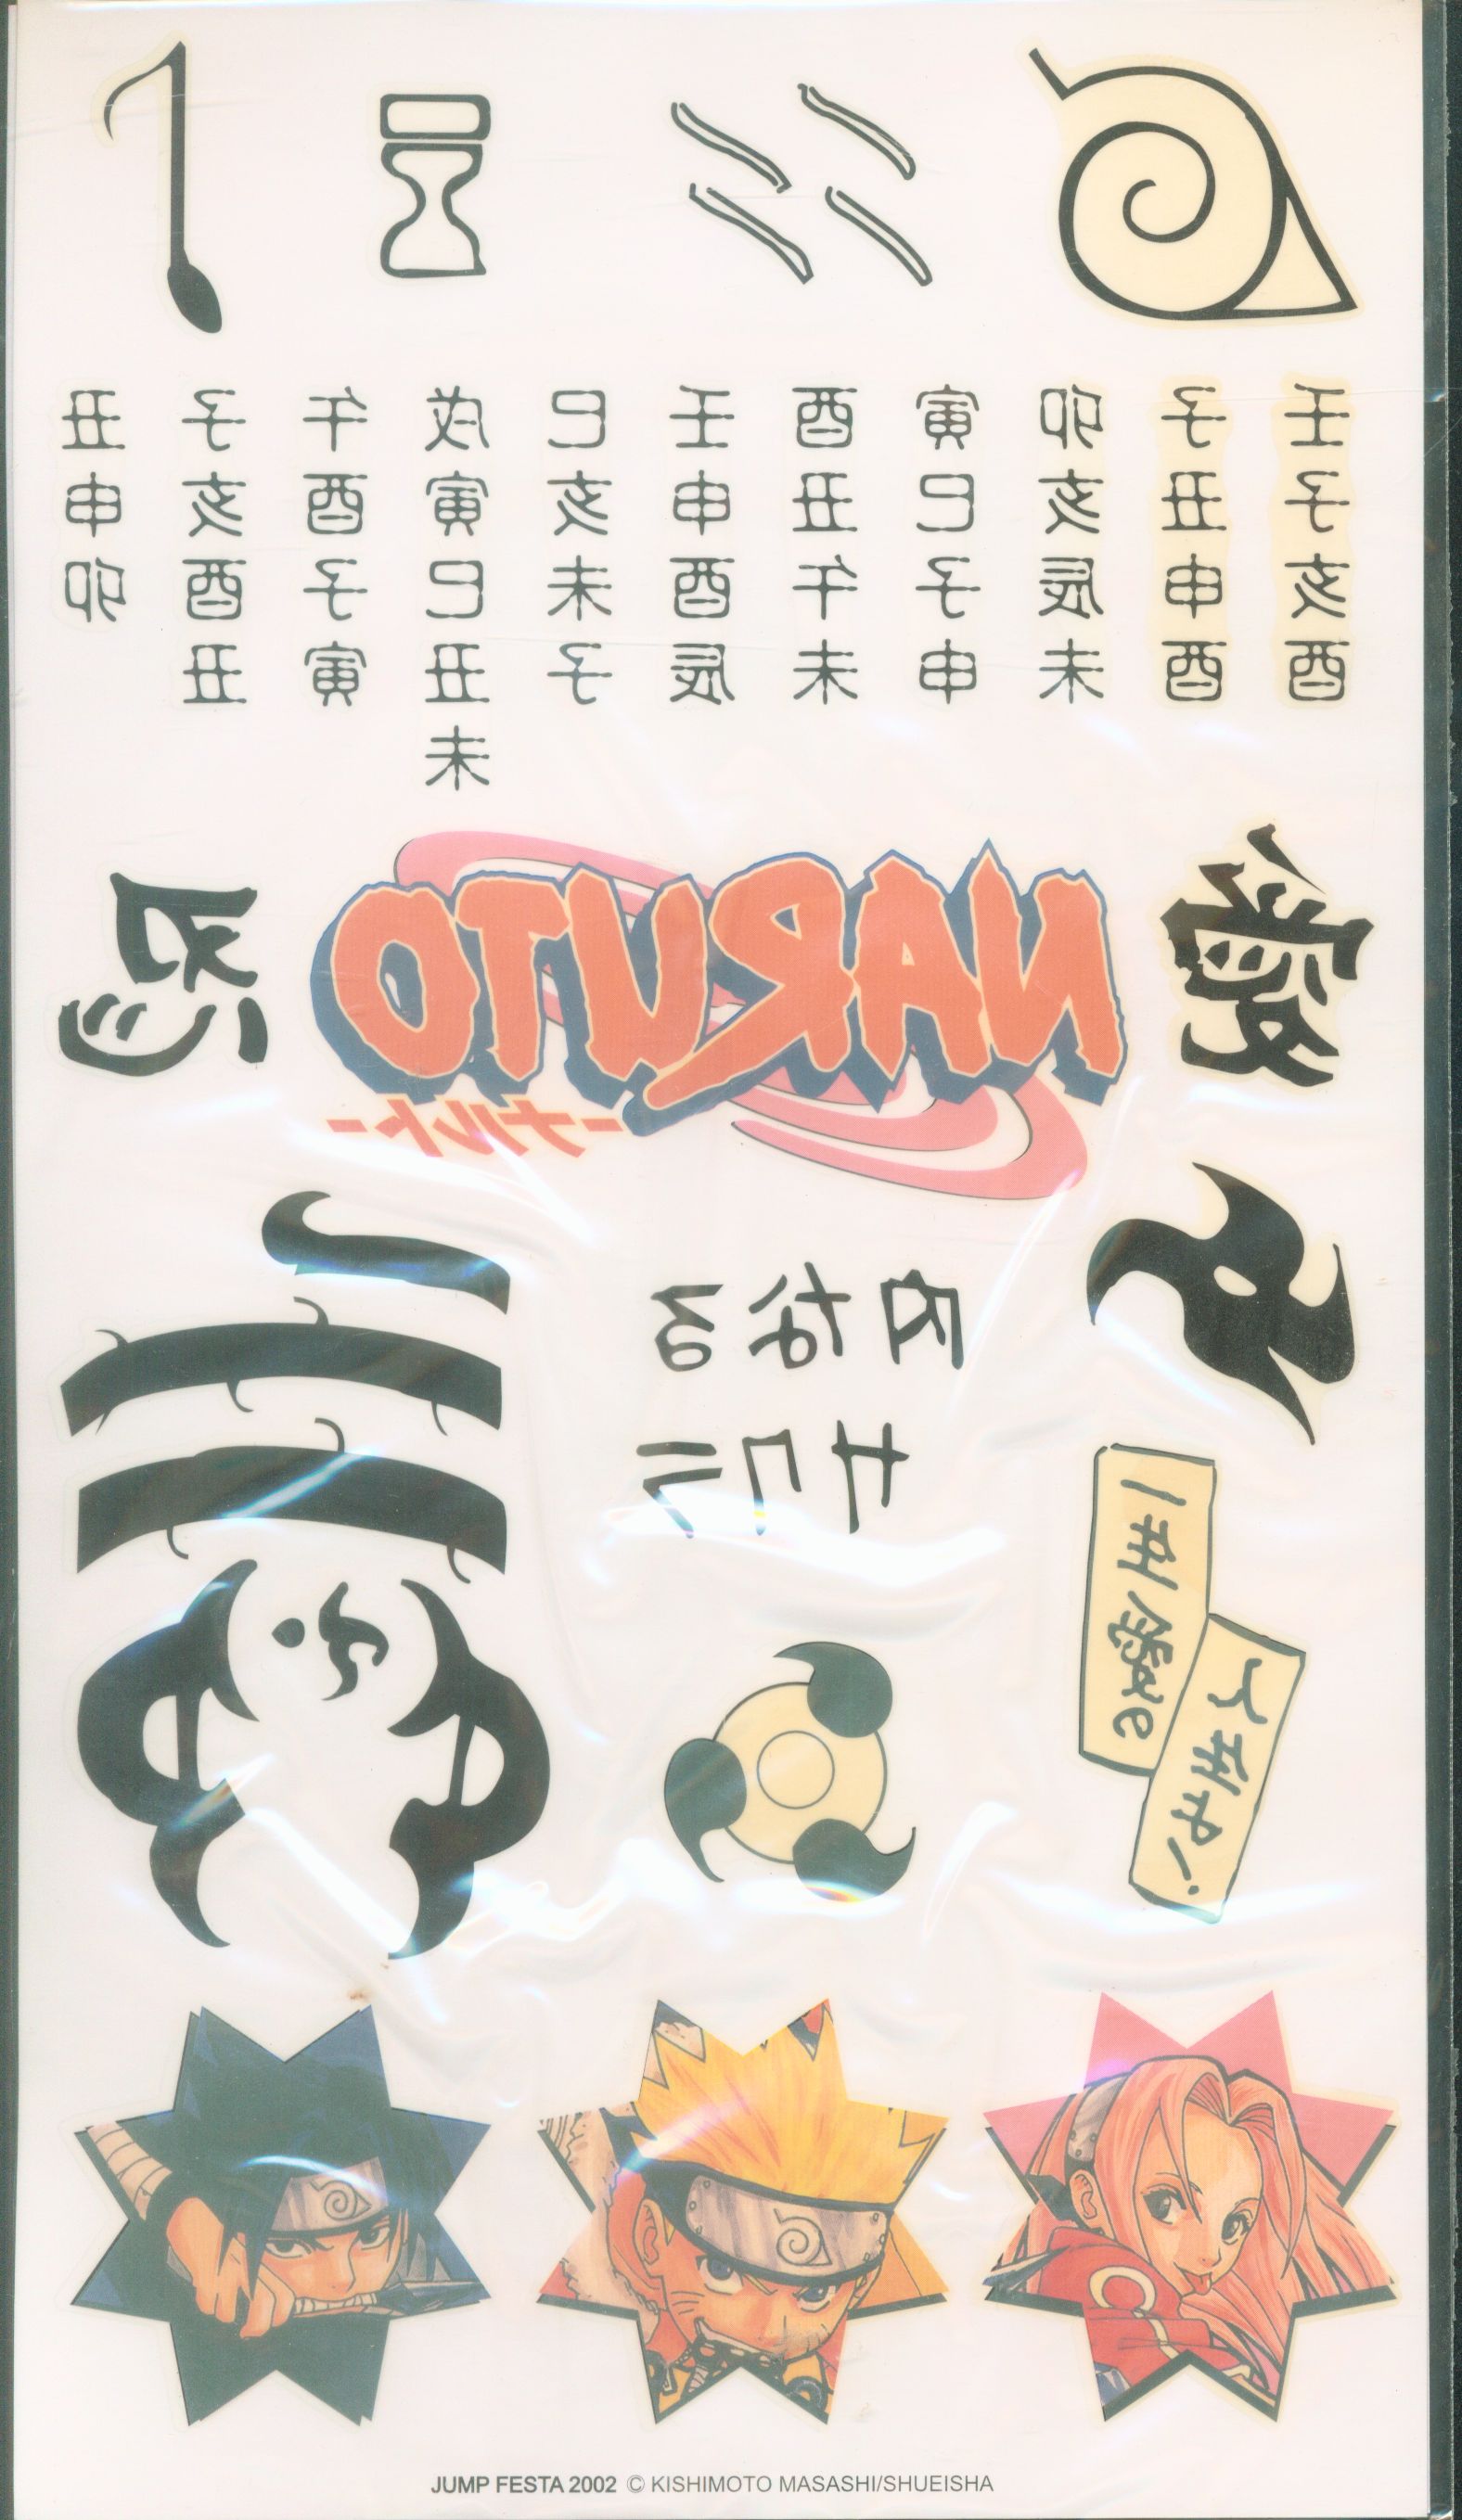 丑申卯
子亥酉丑
午酉子寅
戌寅巳丑未
巳亥未子
壬申酉辰
酉丑午未
寅巳子申
卯亥辰未
子丑申酉
壬子亥酉
愛
NARUTO
-ナルト-
忍
JUMP FESTA 2002 © KISHIMOTO MASASHI/SHUEISHA